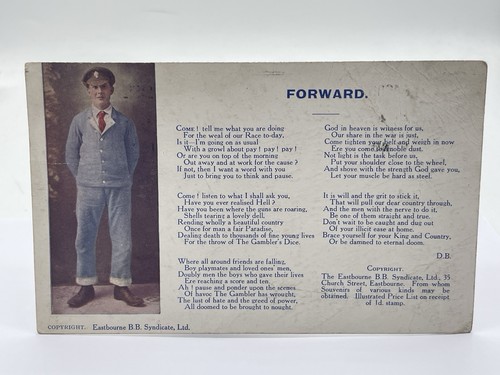 FORWARD.
COME! tell me what you are doing
For the weal of our Race to-day,
Is it—I'm going on as usual
With a growl about pay! pay! pay!
Or are you on top of the morning
Out away and at work for the cause?
If not, then I want a word with you
Just to bring you to think and pause.
Come! listen to what I shall ask you,
Have you ever realised Hell?
Have you been where the guns are roaring,
Shells tearing a lovely dell,
Rending wholly a beautiful country
Once for man a fair Paradise,
Dealing death to thousands of fine young lives
For the throw of The Gambler's Dice.
Where all around friends are falling,
Boy playmates and loved ones' men,
Doubly men the boys who gave their lives
Ere reaching a score and ten.
Ah! pause and ponder upon the scenes
Of havoc The Gambler has wrought,
The lust of hate and the greed of power,
All doomed to be brought to nought.
God in heaven is witness for us,
Our share in the war is just,
Come tighten your belt and weigh in now
Ere you come to ignoble dust.
Not light is the task before us,
Put your shoulder close to the wheel,
And shove with the strength God gave you,
Let your muscle be hard as steel.
It is will and the grit to stick it,
That will pull our dear country through,
And the men with the nerve to do it,
Be one of them straight and true.
Don't wait to be caught and dug out
Of your illicit ease at home.
Brace yourself for your King and Country,
Or be damned to eternal doom.
D.B.
COPYRIGHT.
The Eastbourne B.B. Syndicate, Ltd., 35
Church Street, Eastbourne. From whom
Souvenirs of various kinds may be
obtained. Illustrated Price List on receipt
of 1d. stamp.
COPYRIGHT. Eastbourne B.B. Syndicate, Ltd.